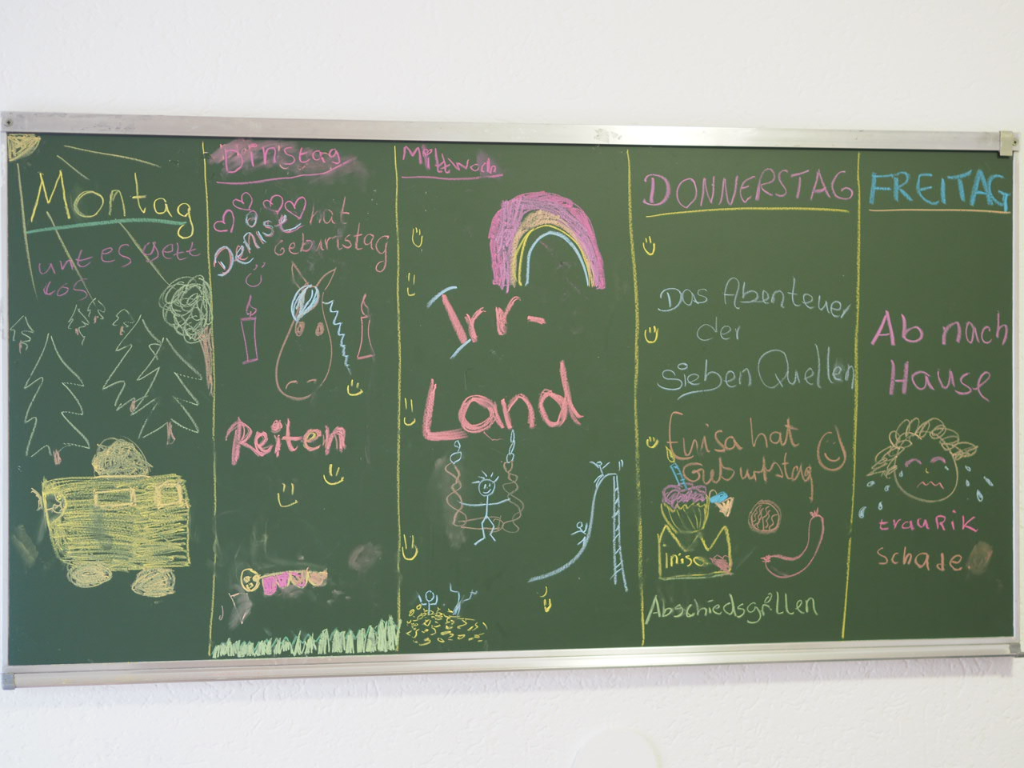 Montag
unt es gett
los
Dinstag
Denise hat
Geburtstag
Reiten
Mittwoch
Irr-
Land
DONNERSTAG
Das Abenteuer
der
sieben Quellen
Enisa hat
Geburtstag
inisa
Abschiedsgrillen
FREITAG
Ab nach
Hause
trauRiK
Schade